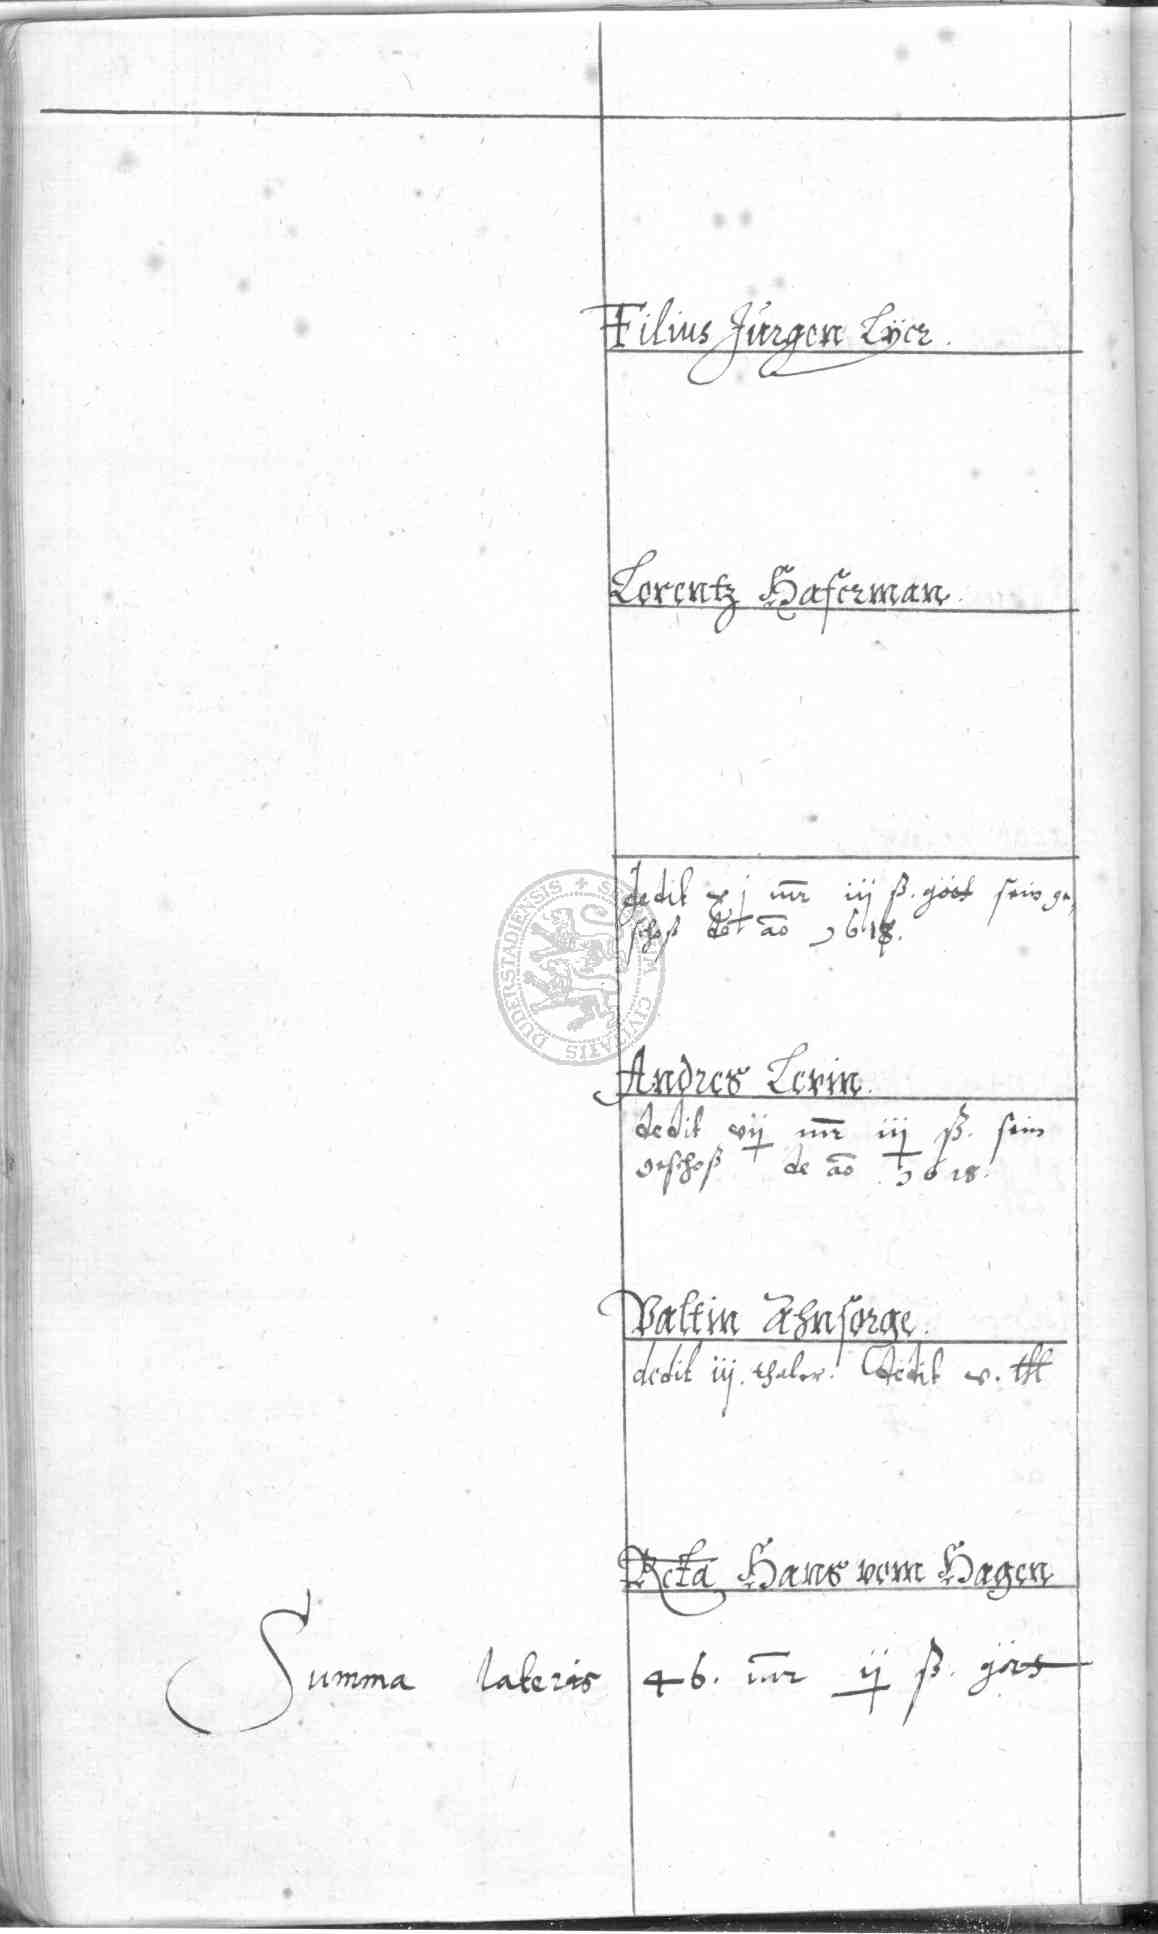 Filius Jürgen Lÿer.
Lorentz Haferman.
dedit xj mr iij ß. gőrs sein ge,
schoß de ao 1618.
SIGILLUM CIVITATIS DUDERSTADIENSIS
Andres Levin.
dedit vij mr iij ß. sein
geschoß de ao 1618.
Valtin Ahnsorge.
dedit iij. thaler. dedit v. thl
Relta Hans vom Hagen
Summa lateris 46. mr ij ß. görs